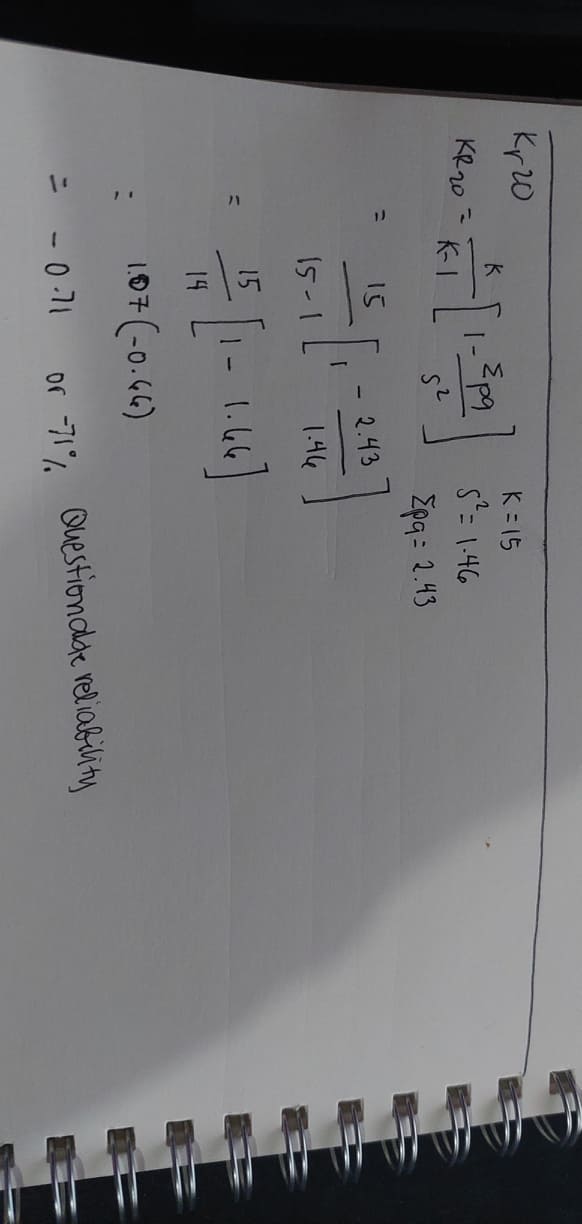 Kr20
KR20 = K/K-1 [1 - Σpq/S²]
K = 15
S² = 1.46
Σpq = 2.43
= 15/15-1 [1 - 2.43/1.46]
= 15/14 [1 - 1.66]
= 1.07 (-0.66)
= -0.71 or -71% Questionable reliability